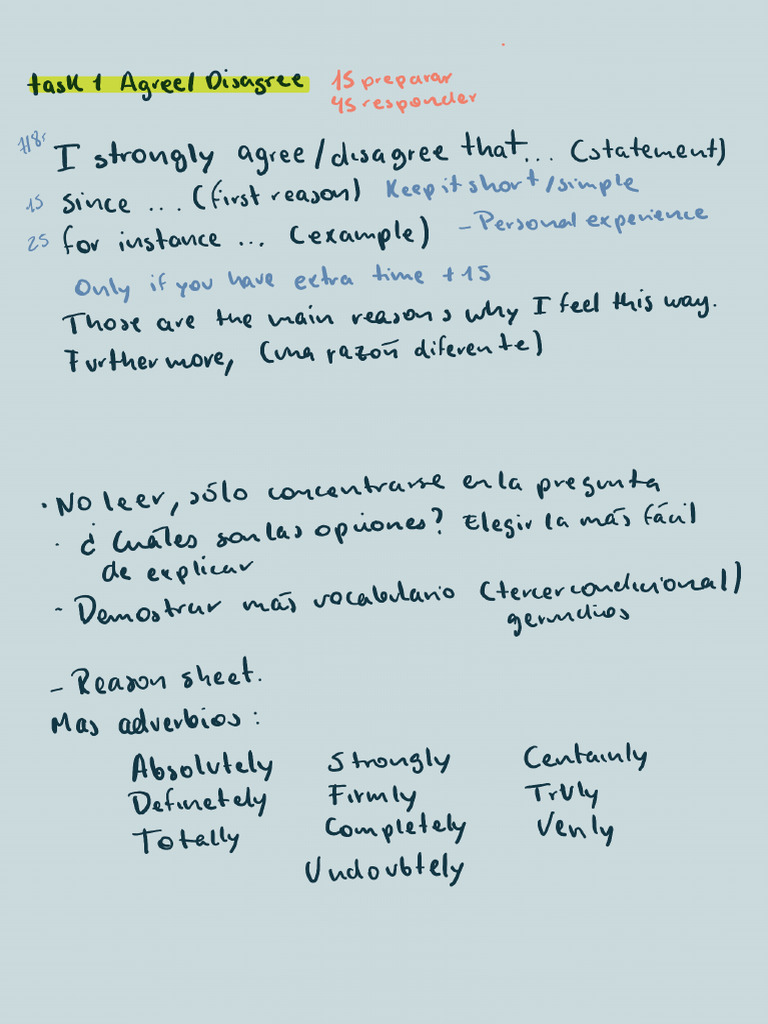 task 1 Agree/Disagree 15 preparar
45 responder
7/8s I strongly agree/disagree that... (statement)
15 since ... (first reason) Keep it short/simple
25 for instance ... (example) - Personal experience
Only if you have extra time +15
Those are the main reasons why I feel this way.
Furthermore, (una razón diferente)
• No leer, sólo concentrarse en la pregunta
· ¿Cuáles son las opciones? Elegir la más fácil
de explicar
- Demostrar más vocabulario (tercer condicional)
gerundios
- Reason sheet.
Mas adverbios:
Absolutely Strongly Certainly
Definetely Firmly Truly
Totally Completely Verily
Undoubtely